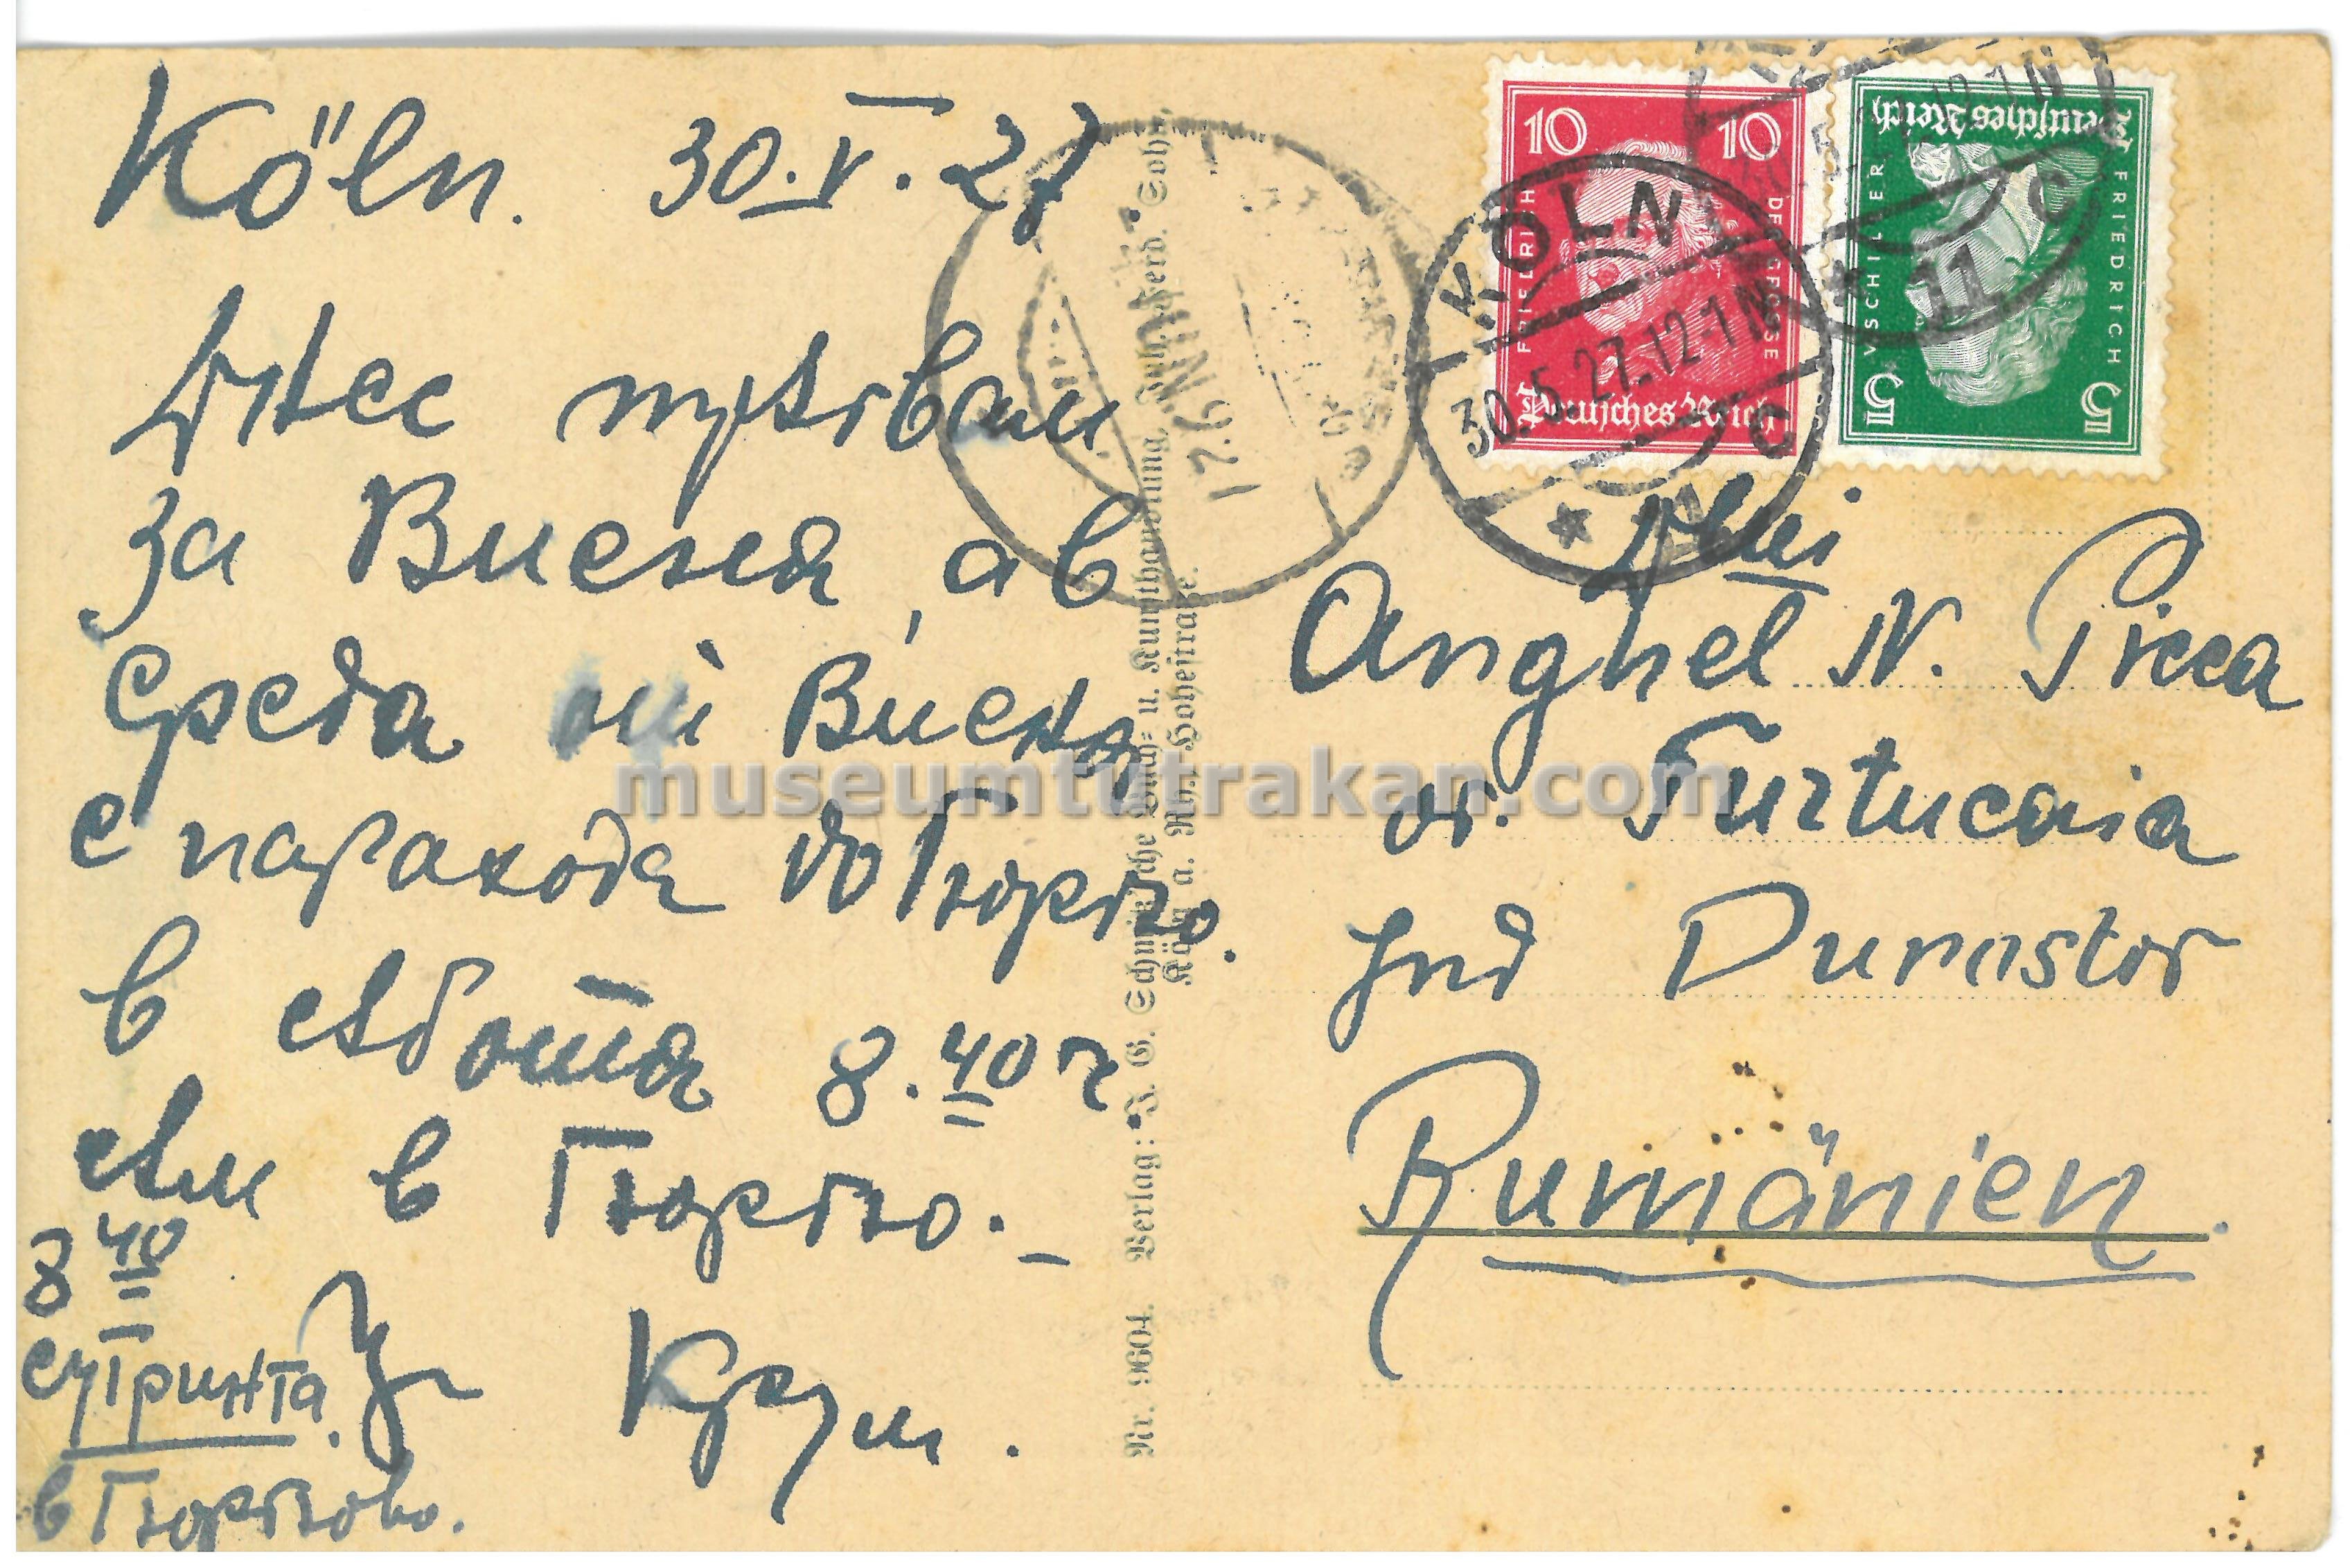 Köln. 30.V.27.
Днес тръгвам
за Виена, а в
сряда от Виена
с парахода до Гюргево.
В събота 8.40 ч
съм в Гюргево.-
8 40
сутринта.
в Гюргево.
Крум.
Nr. 9604. Verlag: J. G. Schmitz'sche Buch- u. Kunsthandlung, Inh. Ferd. Sohn,
Köln a. Rh., Hohestraße.
10 10
FRIEDRICH DER GROSSE
Deutsches Reich
5 5
FRIEDRICH V SCHILLER
Deutsches Reich
KÖLN
30.5.27.12-1N
C
* 11
12-1N
C
* 11
17.6
Anghel N. Picea
or. Turtucaia
jud Durostor
Rumänien.
museumtutrakan.com